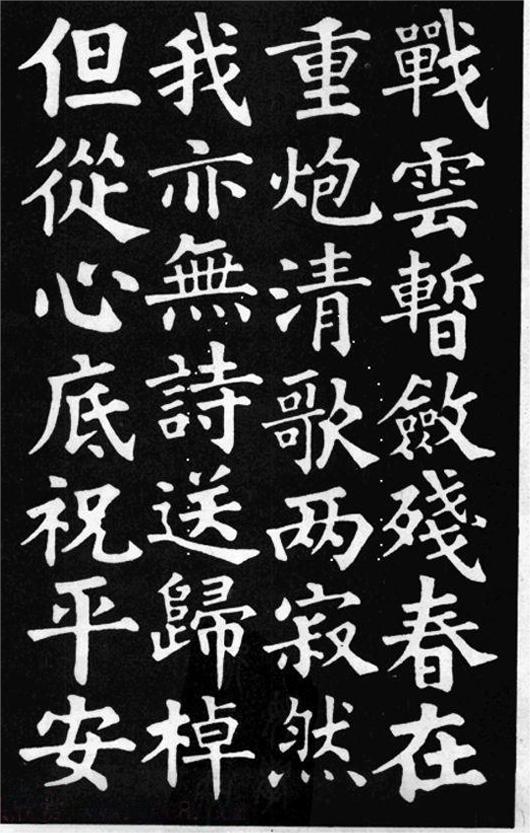 戰雲暫斂殘春在
重炮清歌两寂然
我亦無詩送歸棹
但從心底祝平安